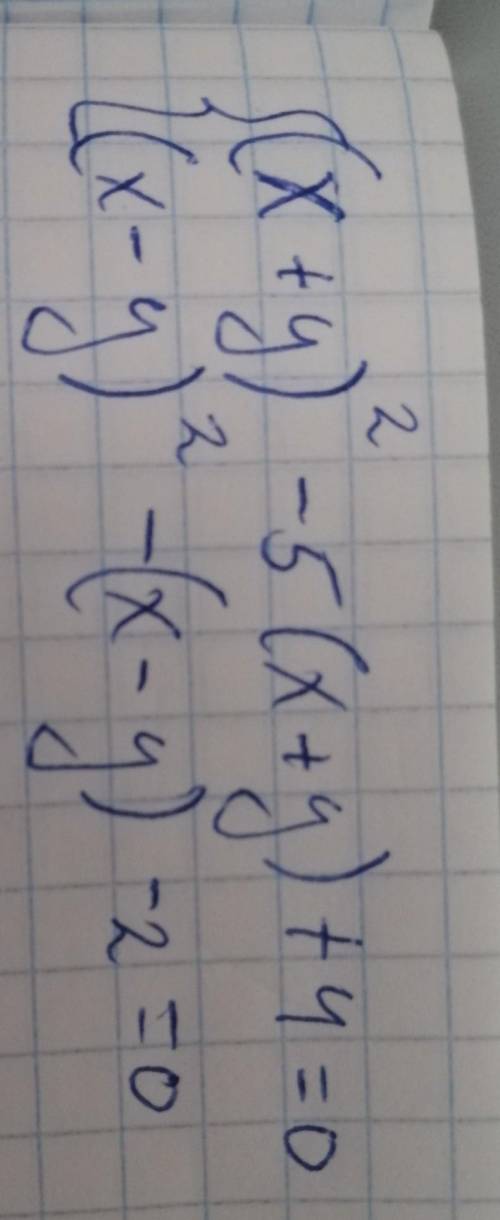 (x+y)² -5(x+y)+4=0
(x-y)² -(x-y) -2=0